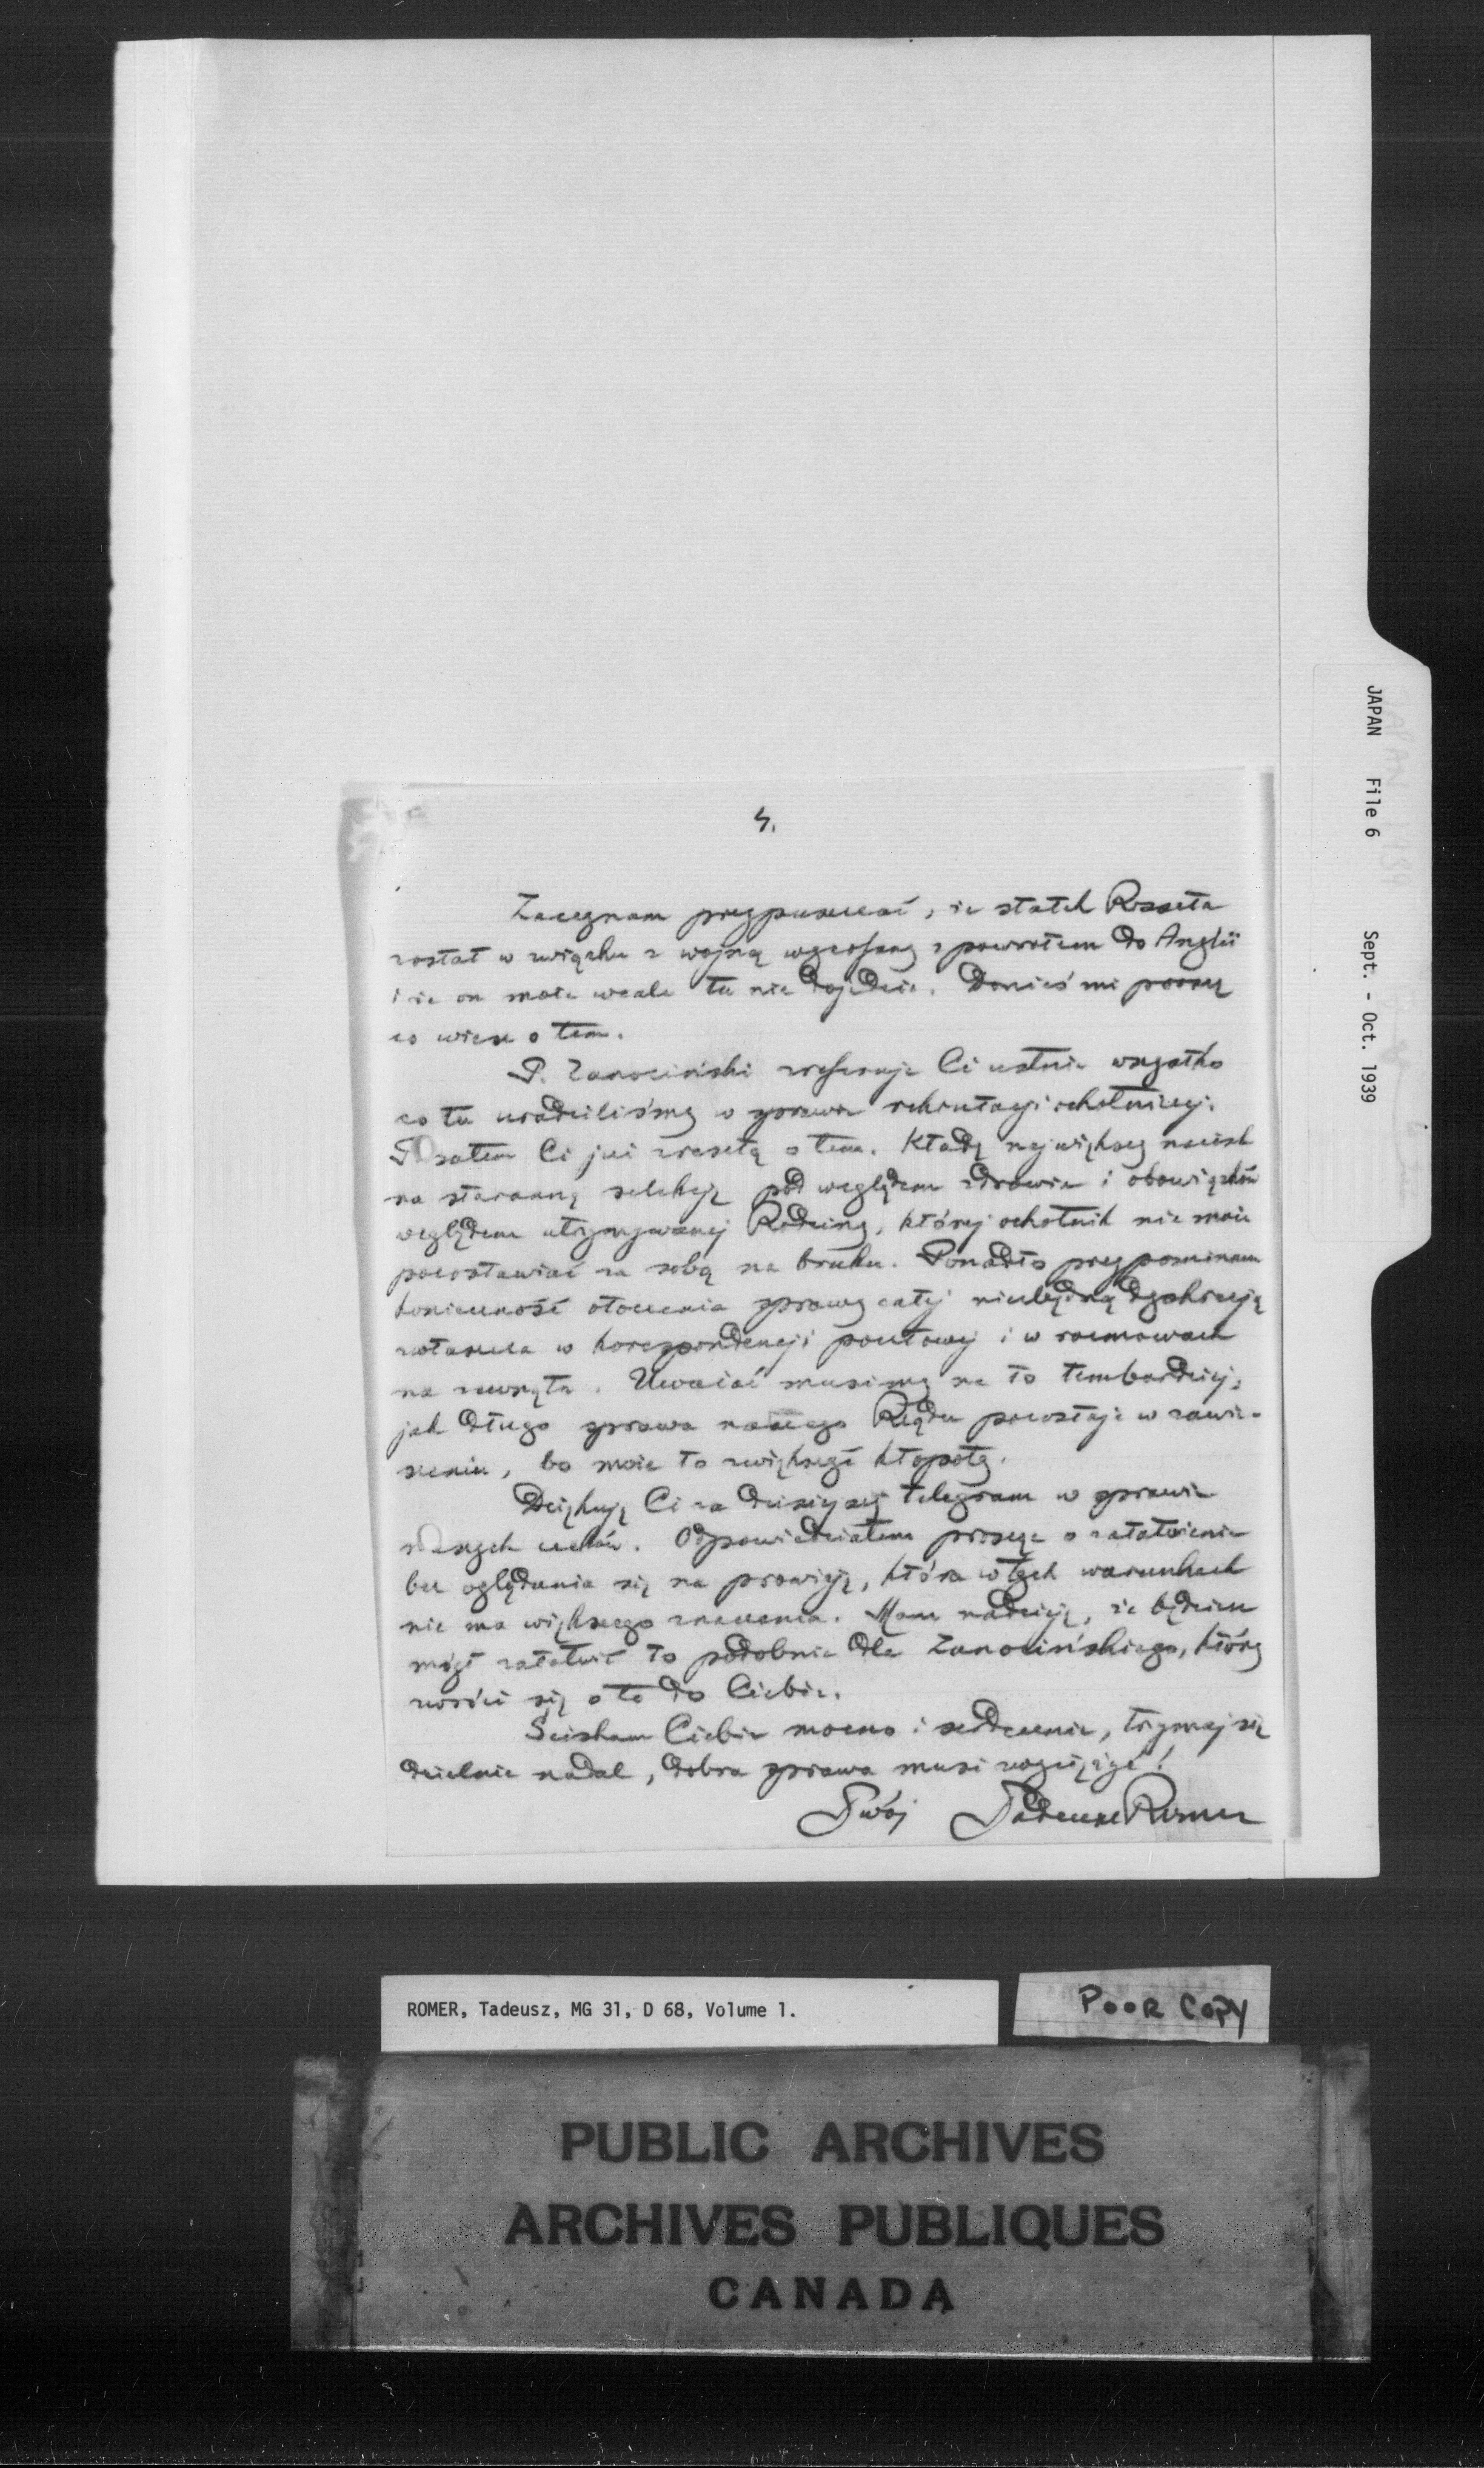 4.
Zaczynam przypuszczać, że statek Rosseta
został w związku z wojną wycofany z powrotem do Anglii
i że on może wcale tu nie dojedzie. Donieś mi proszę
co wiesz o tem.
P. Zanociński zreferuje Ci ustnie wszystko
co tu uradziliśmy w sprawie rekrutacji ochotniczej.
Pisałem Ci już zresztą o tem. Kładę największy nacisk
na staranną selekcję pod względem zdrowia i obowiązków
względem utrzymywanej Rodziny, której ochotnik nie może
pozostawiać za sobą na bruku. Ponadto przypominam
konieczność otoczenia sprawy całej niezbędną dyskrecją
zwłaszcza w korespondencji pocztowej i w rozmowach
na zewnątrz. Uważać musimy na to tembardziej,
jak długo sprawa naszego Rządu pozostaje w zawie-
szeniu, bo może to zwiększyć kłopoty.
Dziękuję Ci za dzisiejszy telegram w sprawie
naszych czeków. Odpowiedziałem prosząc o załatwienie
bez oglądania się na prowizję, która w tych warunkach
nie ma większego znaczenia. Mam nadzieję, że będziesz
mógł załatwić to podobnie dla Zanocińskiego, który
zwróci się o to do Ciebie.
Ściskam Ciebie mocno i serdecznie, trzymaj się
dzielnie nadal, dobra sprawa musi zwyciężyć!
Twój Tadeusz Romer
JAPAN File 6 Sept. - Oct. 1939
ROMER, Tadeusz, MG 31, D 68, Volume 1.
POOR COPY
PUBLIC ARCHIVES
ARCHIVES PUBLIQUES
CANADA